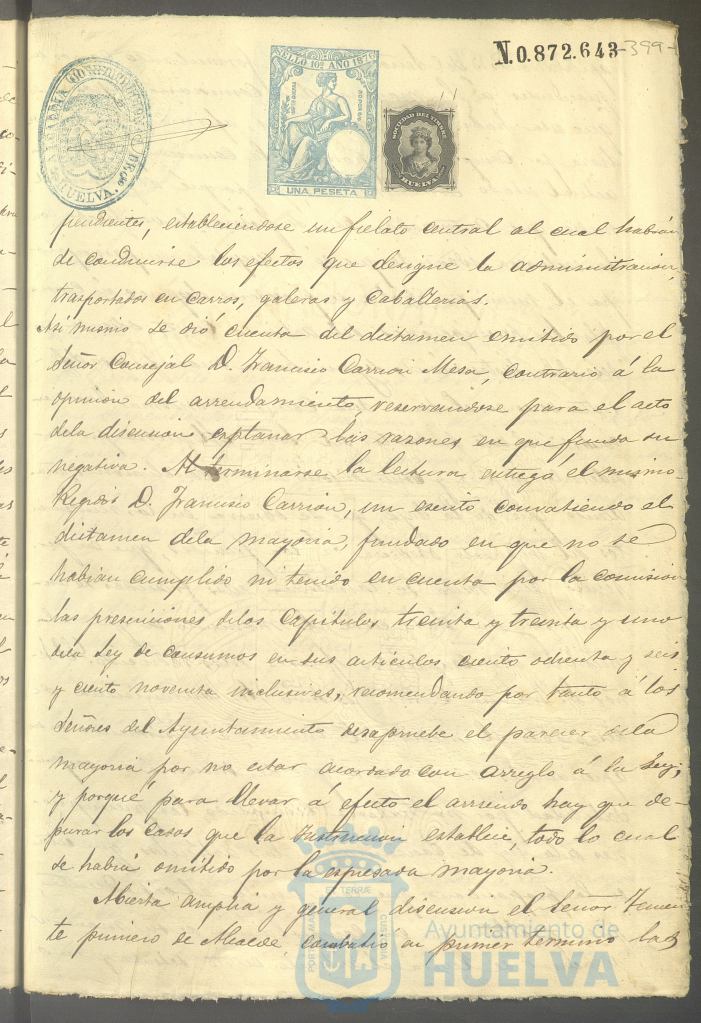 N.0.872.643 -399-
ALCALDIA CONSTITUCIONAL DE HUELVA.
SELLO 10º AÑO 1876
UNA PESETA
SOCIEDAD DEL TIMBRE
HUELVA
pendientes, estableciendose un fielato central al cual habrán
de conducirse los efectos que designe la administracion,
trasportados en carros, galeras y caballerias.
Asi mismo se dió cuenta del dictamen emitido por el
Señor Consejal D. Francisco Carrion Mesa, contrario á la
opinion del arrendamiento, reservandose para el acto
dela discusion esplanar las razones en que funda su
negativa. Al terminarse la lectura entregó el mismo
Regidor D. Francisco Carrion, un escrito convatiendo el
dictamen dela mayoria, fundado en que no se
habian cumplido ni tenido en cuenta por la comision
las prescriciones delos capitulos treinta y treinta y uno
dela Ley de consumos en sus articulos ciento ochenta y seis
y ciento noventa inclusives, recomendando por tanto á los
Señores del Ayuntamiento desapruebe el parecer dela
mayoria por no estar acordado con arreglo á la Ley,
y porqué para llevar á efecto el arriendo hay que de-
purar los casos que la Instruccion establece, todo lo cual
se habia omitido por la espresada mayoria.
Abierta amplia y general discusion el Señor Tenien
te primero de Alcalde, combatió en primer termino las
PORTUS MARIS ET TERRÆ CUSTODIA
Ayuntamiento de
HUELVA